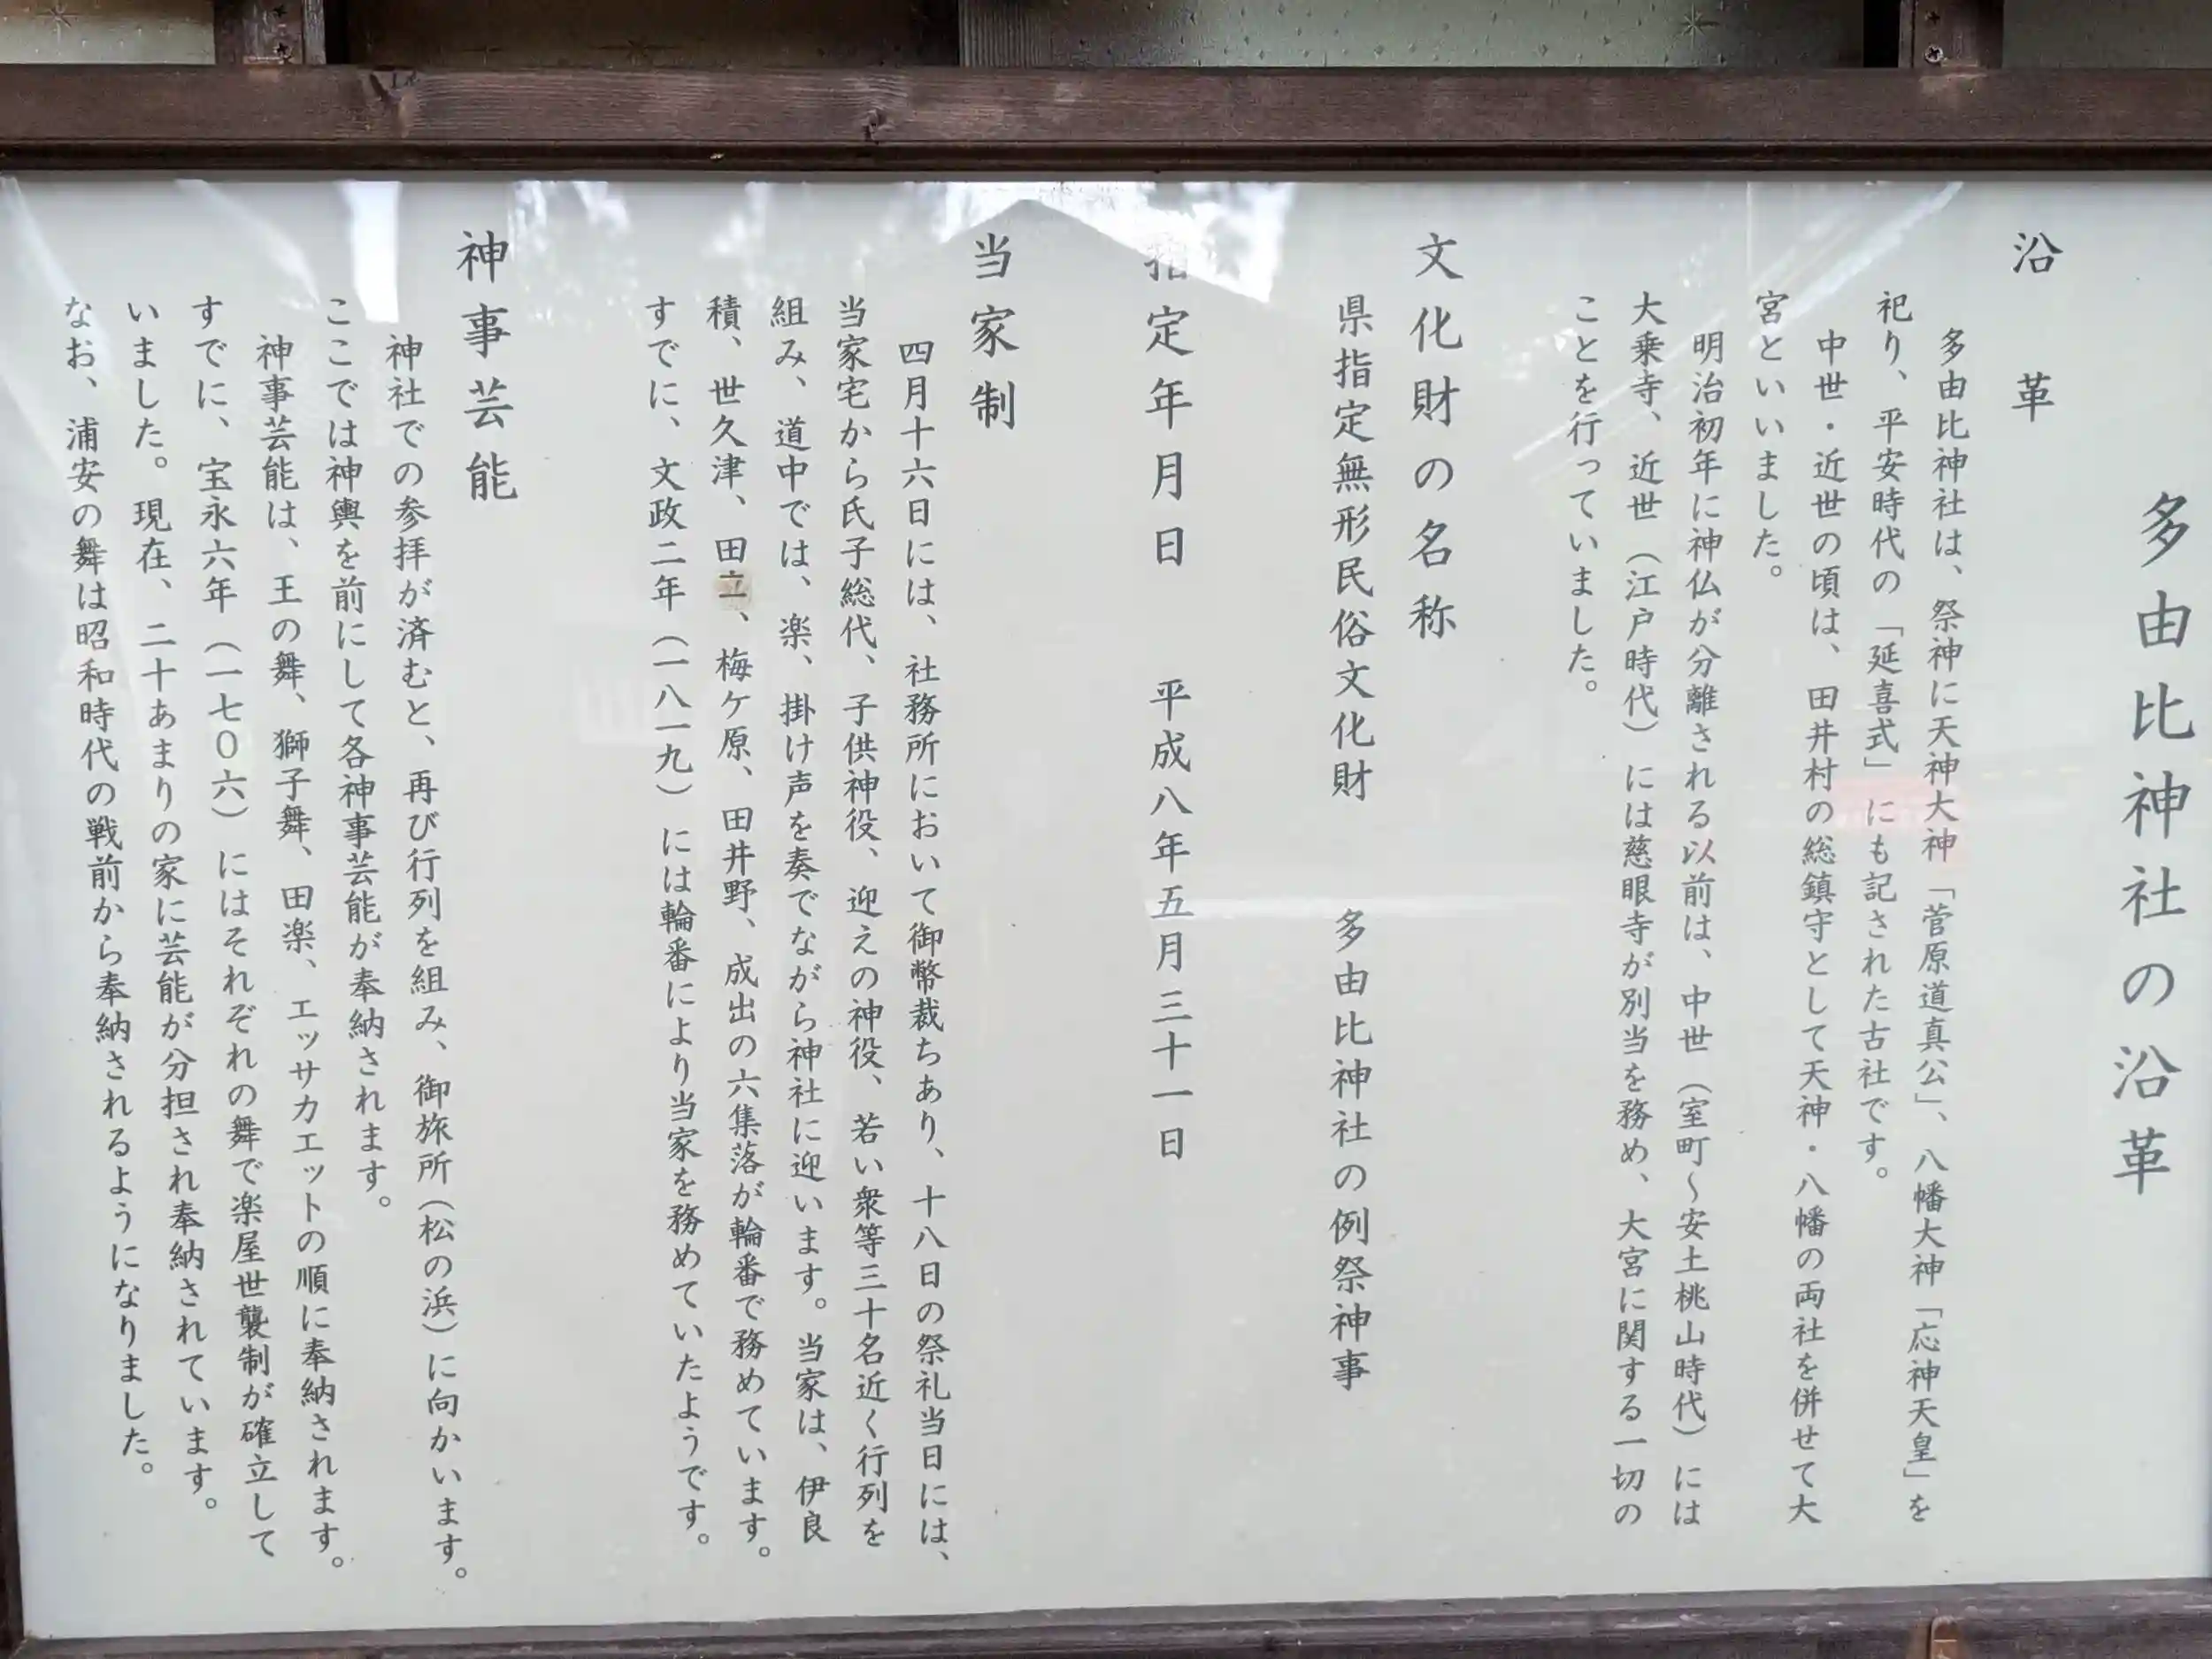 多由比神社の沿革
沿革
多由比神社は、祭神に天神大神「菅原道真公」、八幡大神「応神天皇」を
祀り、平安時代の「延喜式」にも記された古社です。
中世・近世の頃は、田井村の総鎮守として天神・八幡の両社を併せて大
宮といいました。
明治初年に神仏が分離される以前は、中世（室町～安土桃山時代）には
大乗寺、近世（江戸時代）には慈眼寺が別当を務め、大宮に関する一切の
ことを行っていました。
文化財の名称
県指定無形民俗文化財 多由比神社の例祭神事
指定年月日 平成八年五月三十一日
当家制
四月十六日には、社務所において御幣裁ちあり、十八日の祭礼当日には、
当家宅から氏子総代、子供神役、迎えの神役、若い衆等三十名近く行列を
組み、道中では、楽、掛け声を奏でながら神社に迎います。当家は、伊良
積、世久津、田立、梅ケ原、田井野、成出の六集落が輪番で務めています。
すでに、文政二年（一八一九）には輪番により当家を務めていたようです。
神事芸能
神社での参拝が済むと、再び行列を組み、御旅所（松の浜）に向かいます。
ここでは神輿を前にして各神事芸能が奉納されます。
神事芸能は、王の舞、獅子舞、田楽、エッサカエットの順に奉納されます。
すでに、宝永六年（一七０六）にはそれぞれの舞で楽屋世襲制が確立して
いました。現在、二十あまりの家に芸能が分担され奉納されています。
なお、浦安の舞は昭和時代の戦前から奉納されるようになりました。